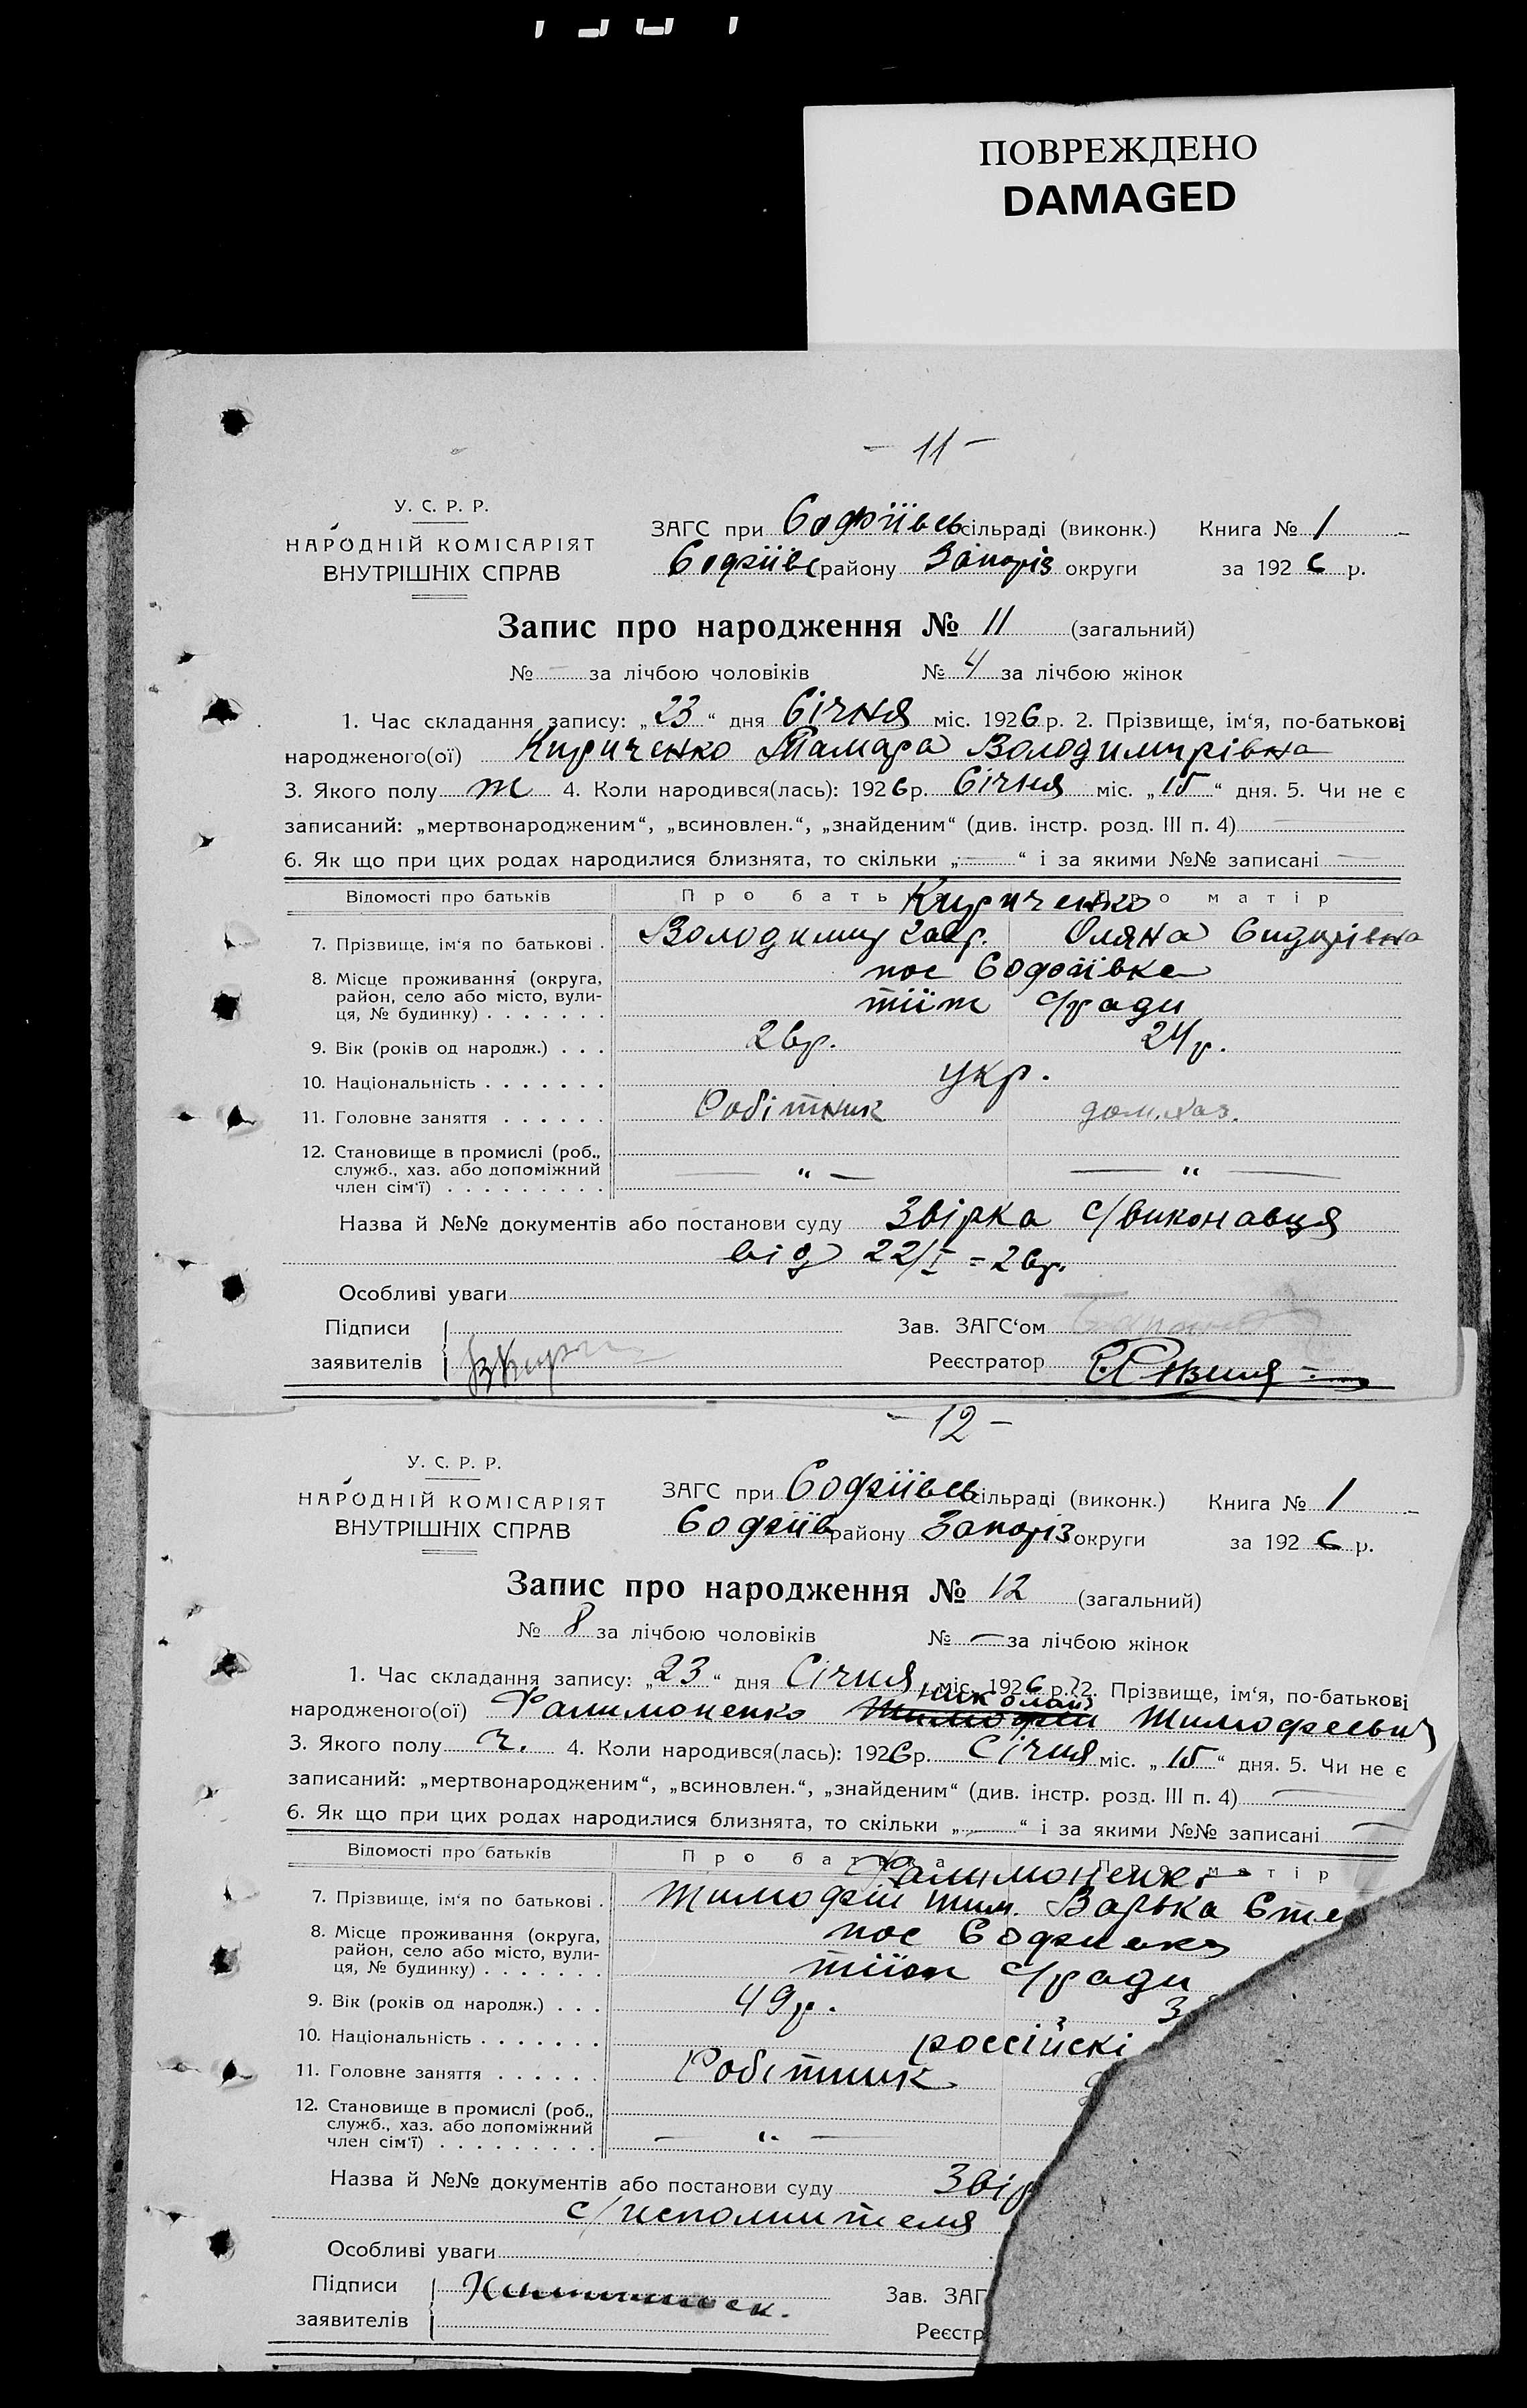 ПОВРЕЖДЕНО
DAMAGED
- 11 -
У. С. Р. Р.
НАРОДНІЙ КОМІСАРІЯТ
ВНУТРІШНІХ СПРАВ
ЗАГС при Софіївсь сільраді (виконк.) Книга № 1
Софіївс району Запоріз округи за 1926 р.
Запис про народження № 11 (загальний)
№ — за лічбою чоловіків № 4 за лічбою жінок
1. Час складання запису: „23“ дня Січня міс. 1926 р. 2. Прізвище, ім‘я, по-батькові
народженого(ої) Кириченко Тамара Володимирівна
3. Якого полу ж 4. Коли народився(лась): 1926 р. Січня міс. „15“ дня. 5. Чи не є
записаний: „мертвонародженим“, „всиновлен.“, „знайденим“ (див. інстр. розд. III п. 4) —
6. Як що при цих родах народилися близнята, то скільки „—“ і за якими №№ записані —
Відомості про батьків Про батька Про матір
Кириченко
7. Прізвище, ім‘я по батькові . Володимир Оляна Сидорівна
8. Місце проживання (округа, пос Софіївка
район, село або місто, вули-
ця, № будинку) . . . . . . . тіїж с/ради
9. Вік (років од народж.) . . . 26р. 24р.
10. Національність . . . . . . . укр.
11. Головне заняття . . . . . . Робітник дом. хаз.
12. Становище в промислі (роб.,
служб., хаз. або допоміжний — „ — — „ —
член сім‘ї) . . . . . . . . .
Назва й №№ документів або постанови суду Звірка с/виконавця
від 22/I - 26р.
Особливі уваги
Підписи Зав. ЗАГС‘ом
заявителів Реєстратор
- 12 -
У. С. Р. Р.
НАРОДНІЙ КОМІСАРІЯТ
ВНУТРІШНІХ СПРАВ
ЗАГС при Софіївсь сільраді (виконк.) Книга № 1
Софіїв району Запоріз округи за 1926 р.
Запис про народження № 12 (загальний)
№ 8 за лічбою чоловіків № — за лічбою жінок
1. Час складання запису: „23“ дня Січня міс. 1926 р. 2. Прізвище, ім‘я, по-батькові
николай
народженого(ої) Фалимоненко Тимофій Тимофеевич
3. Якого полу ч. 4. Коли народився(лась): 1926 р. Січня міс. „15“ дня. 5. Чи не є
записаний: „мертвонародженим“, „всиновлен.“, „знайденим“ (див. інстр. розд. III п. 4) —
6. Як що при цих родах народилися близнята, то скільки „—“ і за якими №№ записані —
Відомості про батьків Про батька Про матір
Фалимоненко
7. Прізвище, ім‘я по батькові . Тимофій Тим. Варька Сте
8. Місце проживання (округа, пос Софиевка
район, село або місто, вули-
ця, № будинку) . . . . . . . тіїж с/ради
9. Вік (років од народж.) . . . 49р. 3
10. Національність . . . . . . . россійскі
11. Головне заняття . . . . . . Робітник
12. Становище в промислі (роб.,
служб., хаз. або допоміжний
член сім‘ї) . . . . . . . . . — „ —
Назва й №№ документів або постанови суду Звір
с/исполнителя
Особливі уваги
Підписи Зав. ЗАГ
заявителів Реєстр